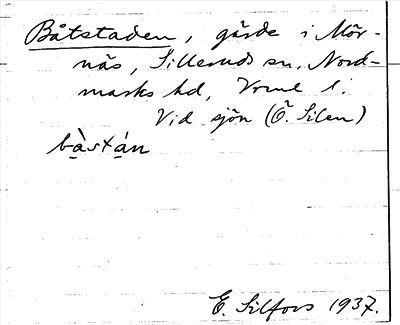 Båtstaden, gärde i Mör-
näs, Silleruds sn, Nord-
marks hd, Vrml l.
Vid sjön (Ö. Silen)
bàstán
E. Silfors 1937.